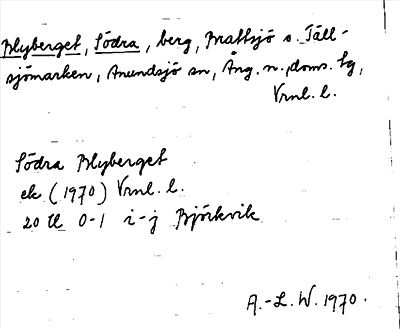 Blyberget, Södra, berg, Brattsjö s. Täll-
sjömarken, Anundsjö sn, Ång. n., doms. tg,
Vrnl. l.
Södra Blyberget
ek (1970) Vrnl. l.
20 Il 0-1 i-j Björkvik
A.-L. W. 1970.